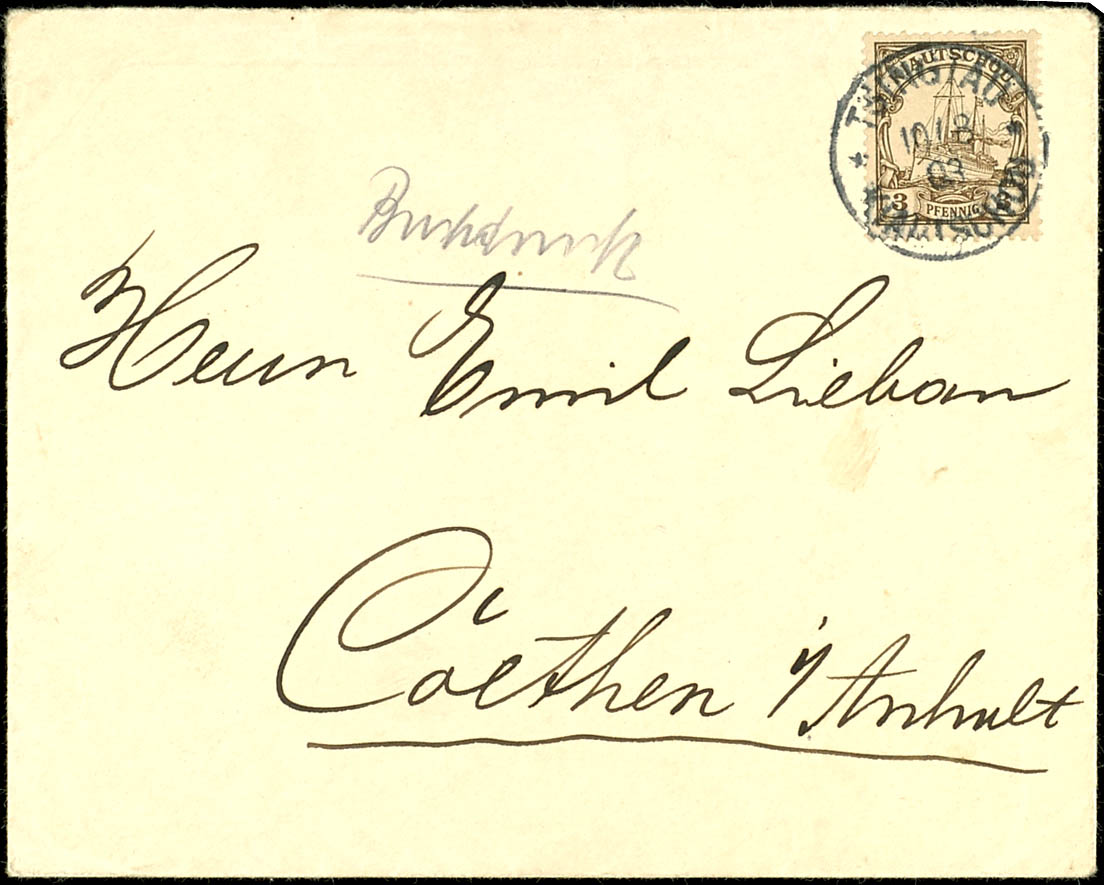 KIAUTSCHOU
3 PFENNIG 3
TSINGTAU
10/8
03
KIAUTSCHOU
Herrn Emil Lieban
Cöethen i/Anhalt